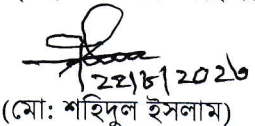 ২২/৮/২০২৩
(মো: শহিদুল ইসলাম)